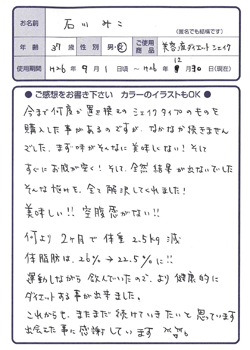 お名前 石川 みこ
(匿名でも結構です)
年齢 37歳 性別 男・女 ご使用商品 美容液ダイエットシェイク
使用期間 H26年9月1日頃 〜 H26年12月30日(現在)
●ご感想をお書き下さい カラーのイラストもOK●
今まで何度か置き換えのシェイクタイプのものを
購入した事があるのですが、なかなか続きません
でした。まず味がそんなに美味しくない!そして
すぐにお腹が空く!そして、全然結果が出ないでした
そんな悩みを、全て解決してくれました!
美味しい!!空腹感がない!!
何より2ヶ月で体重2.5kg減
体脂肪は、26%→22.5%に!!
運動しながら飲んでいたので、より健康的に
ダイエットする事が出来ました。
これからも、まだまだ続けていきたいと思っています
出会えた事に感謝しています